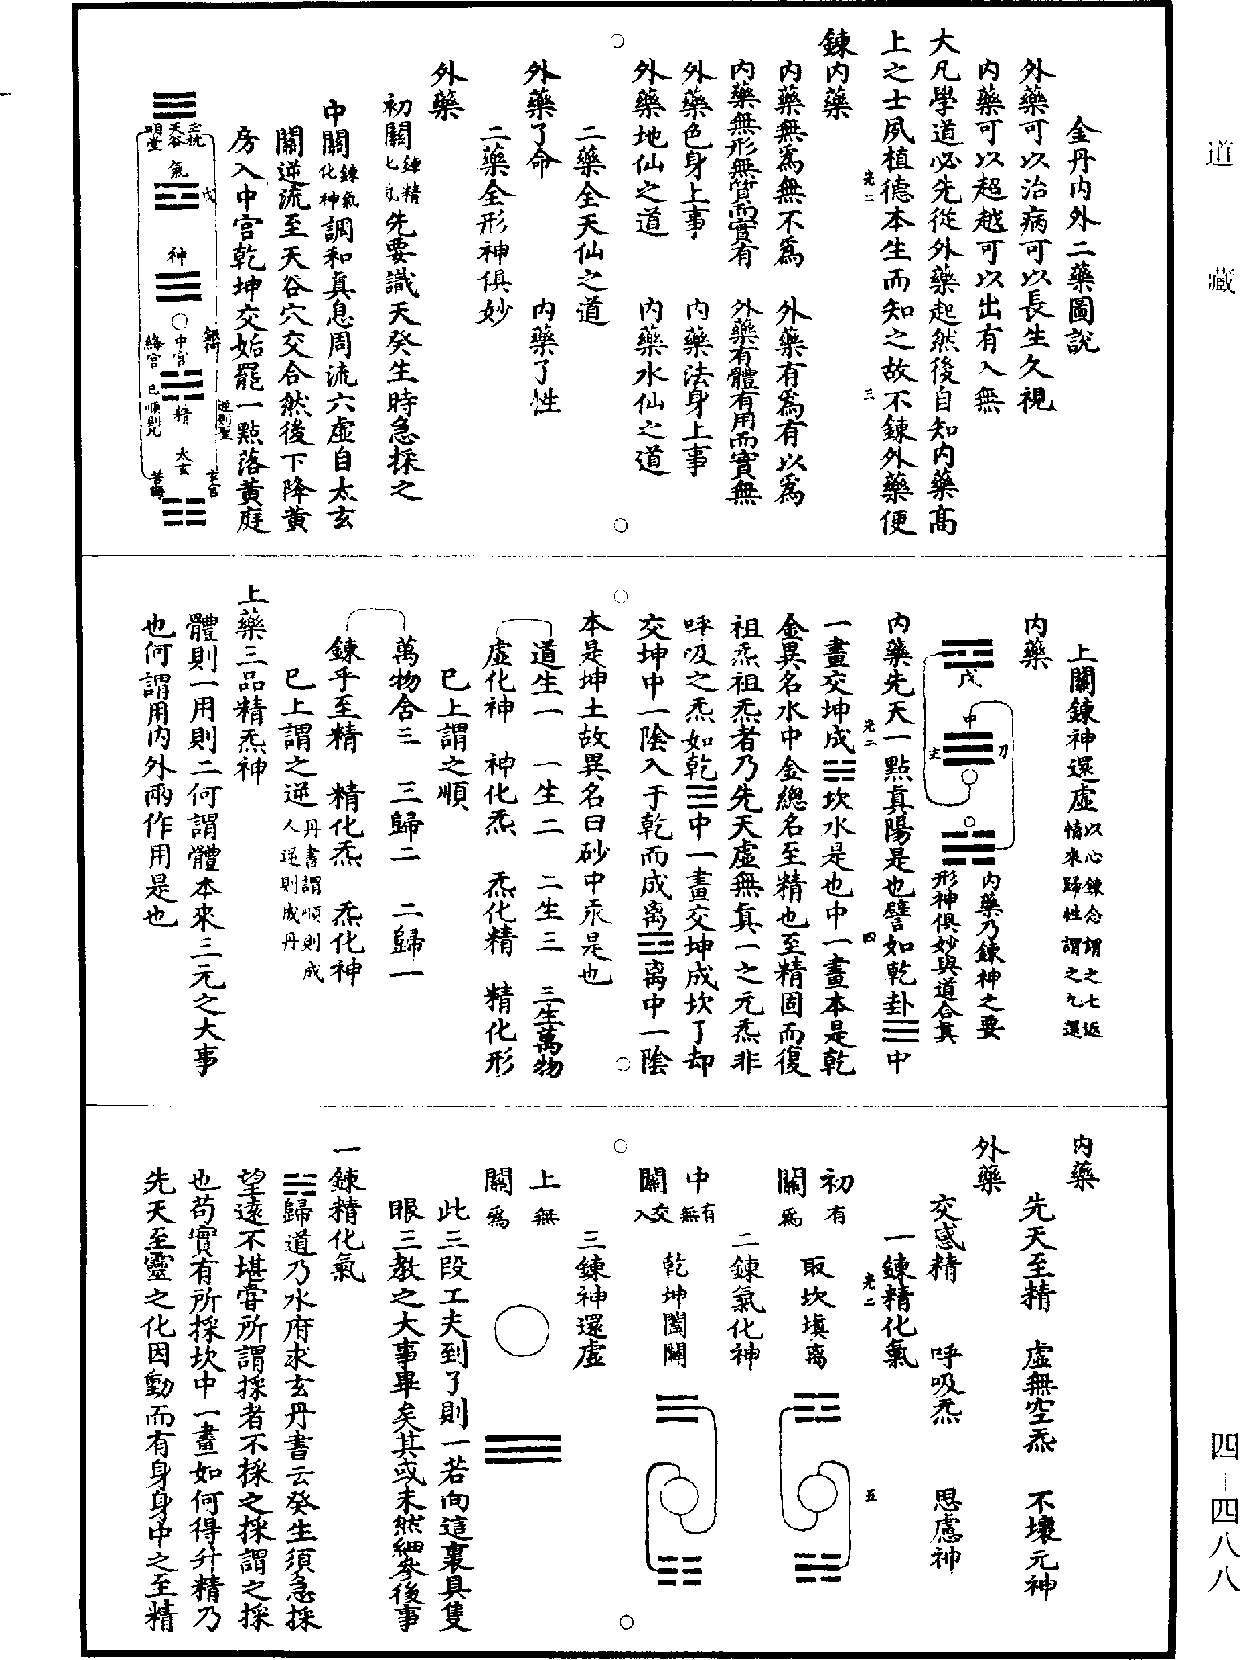 道藏
金丹內外二藥圖說
外藥可以治病可以長生久視
內藥可以超越可以出有入無
大凡學道必先從外藥起然後自知內藥高
上之士夙植德本生而知之故不鍊外藥便
鍊內藥
內藥無爲無不爲　外藥有爲有以爲
內藥無形無質而實有　外藥有體有用而實無
外藥色身上事　內藥法身上事
外藥地仙之道　內藥水仙之道
二藥全天仙之道
外藥了命　內藥了性
二藥全形神俱妙
外藥
初關鍊精化氣先要識天癸生時急採之
中關鍊氣化神調和真息周流六虛自太玄
關逆流至天谷穴交合然後下降黃
房入中宮乾坤交姤罷一點落黃庭
天谷
氣
戊
神
中宮
絳宮
己順則凡
逆則聖
精
太玄
苦海
上關鍊神還虛以心鍊念謂之七返情來歸性謂之九還
內藥
戊
中
內藥乃鍊神之要
形神俱妙與道合真
內藥先天一點真陽是也譬如乾卦☰中
一畫交坤成☵坎水是也中一畫本是乾
金異名水中金總名至精也至精固而復
祖炁祖炁者乃先天虛無真一之元炁非
呼吸之炁如乾☰中一畫交坤成坎了却
交坤中一陰入于乾而成离☲离中一陰
本是坤土故異名曰砂中汞是也
道生一　一生二　二生三　三生萬物
虛化神　神化炁　炁化精　精化形
已上謂之順
萬物含三　三歸二　二歸一
鍊乎至精　精化炁　炁化神
已上謂之逆丹書謂順則成人逆則成丹
上藥三品精炁神
體則一用則二何謂體本來三元之大事
也何謂用內外兩作用是也
內藥
先天至精　虛無空炁　不壞元神
外藥
交感精　呼吸炁　思慮神
一鍊精化氣
初關有爲　取坎填离
二鍊氣化神
中關有無交入　乾坤闔闢
三鍊神還虛
上關無爲
此三段工夫到了則一若向這裏具隻
眼三教之大事畢矣其或未然細參後事
一鍊精化氣
☵歸道乃水府求玄丹書云癸生須急採
望遠不堪嘗所謂採者不採之採謂之採
也苟實有所採坎中一畫如何得升精乃
先天至靈之化因動而有身身中之至精
四－四八八